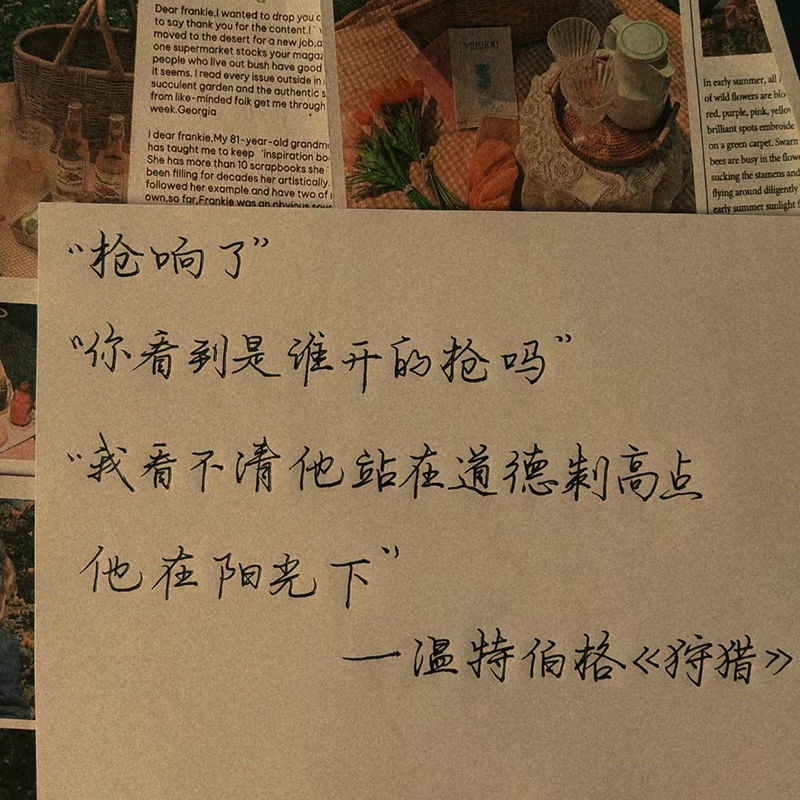 Dear frankie,I wanted to drop you
to say thank you for the content.I
moved to the desert for a new job,a
one supermarket stocks your
people who live out bush have good
it seems. I read every issue outside in
succulent garden and the authentic
from like-minded folk get me through
week.Georgia
I dear frankie,My 81-year-old
has taught me to keep 'inspiration
She has more than 10 scrapbooks she
been filling for decades her artistically.
followed her example and have two of
own,so far.Frankie was an obvious
In early summer, all
of wild flowers are
red, purple, pink,
brilliant spots
on a green carpet.
bees are busy in the
sucking the stamens and
flying around diligently
early summer sunlight
“抢响了”
“你看到是谁开的抢吗”
“我看不清他站在道德制高点
他在阳光下”
—温特伯格《狩猎》